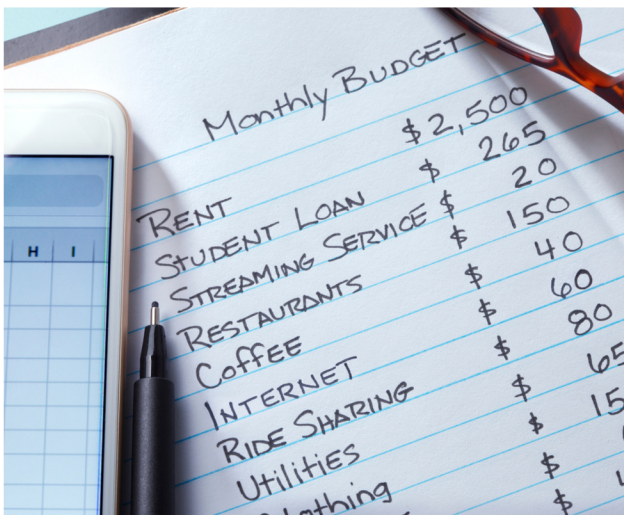 Monthly BUDGET
RENT $ 2,500
STUDENT LOAN $ 265
STREAMING SERVICE $ 20
RESTAURANTS $ 150
Coffee $ 40
INTERNET $ 60
RIDE SHARING $ 80
Utilities $ 65
Clothing $ 15
$
$
H I